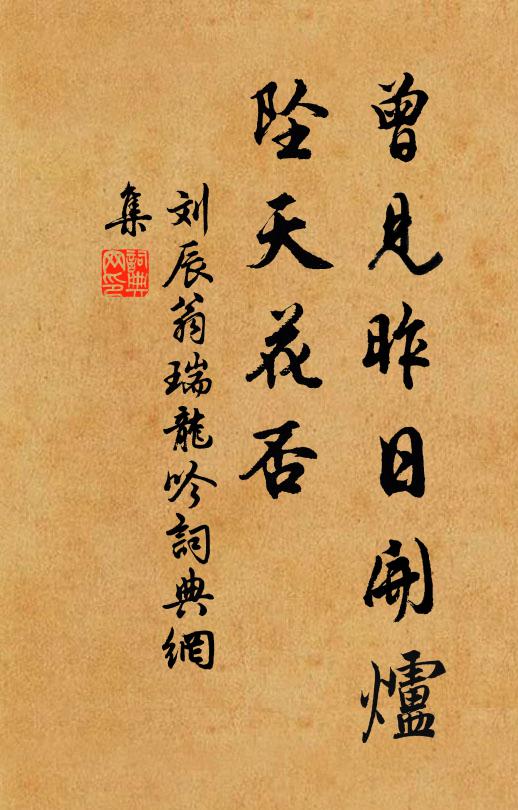 曾見昨日開爐
墜天花否
刘辰翁瑞龍吟詞典網
集
詞典
网印